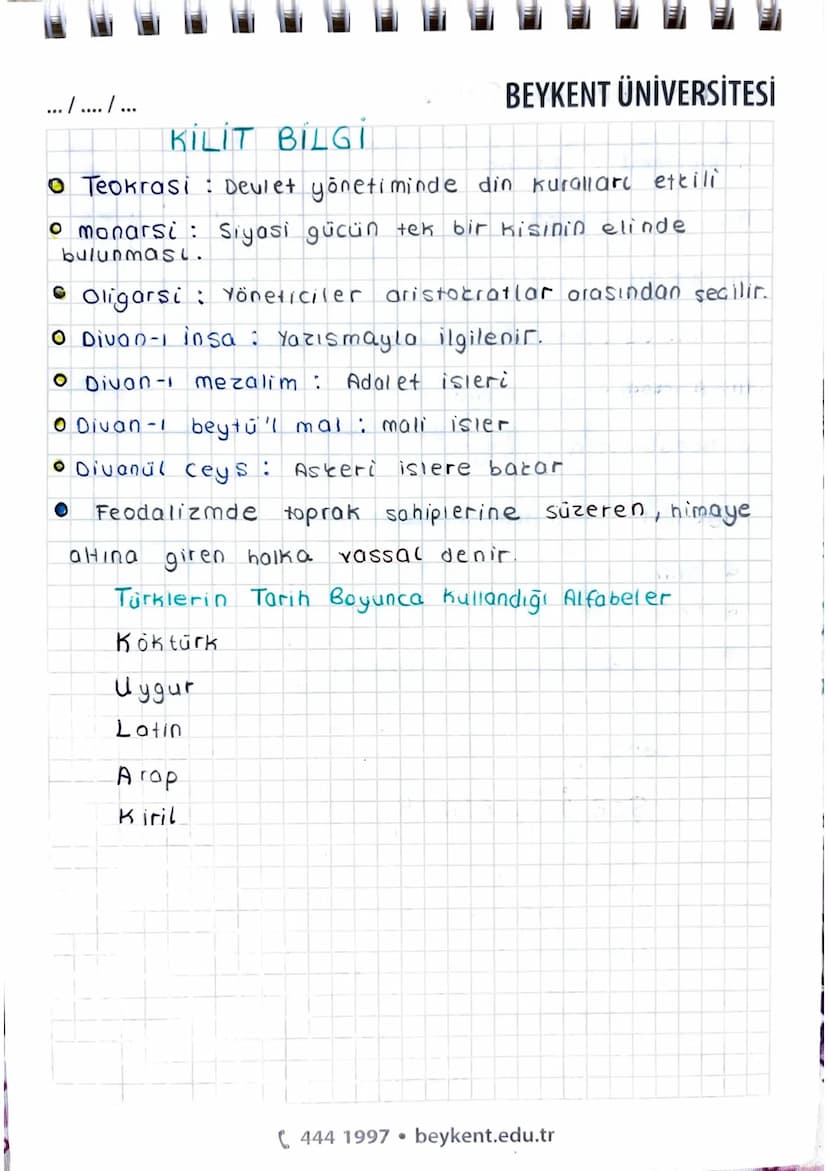 ... / .... / ...
BEYKENT ÜNİVERSİTESİ
KİLİT BİLGİ
Teokrasi : Devlet yönetiminde din kuralları etkili
monarsi : Siyasi gücün tek bir kisinin elinde
bulunması.
Oligarsi : Yöneticiler aristokratlar arasından seçilir.
Divan-ı insa : Yazısmayla ilgilenir.
Divan-ı mezalim : Adalet isleri
Divan-ı beytü'l mal : mali isler
Divanül ceys : Askeri islere bakar
Feodalizmde toprak sahiplerine süzeren, himaye
altına giren halka vassal denir.
Türklerin Tarih Boyunca Kullandığı Alfabeler
Köktürk
Uygur
Latin
Arap
Kiril
444 1997 • beykent.edu.tr